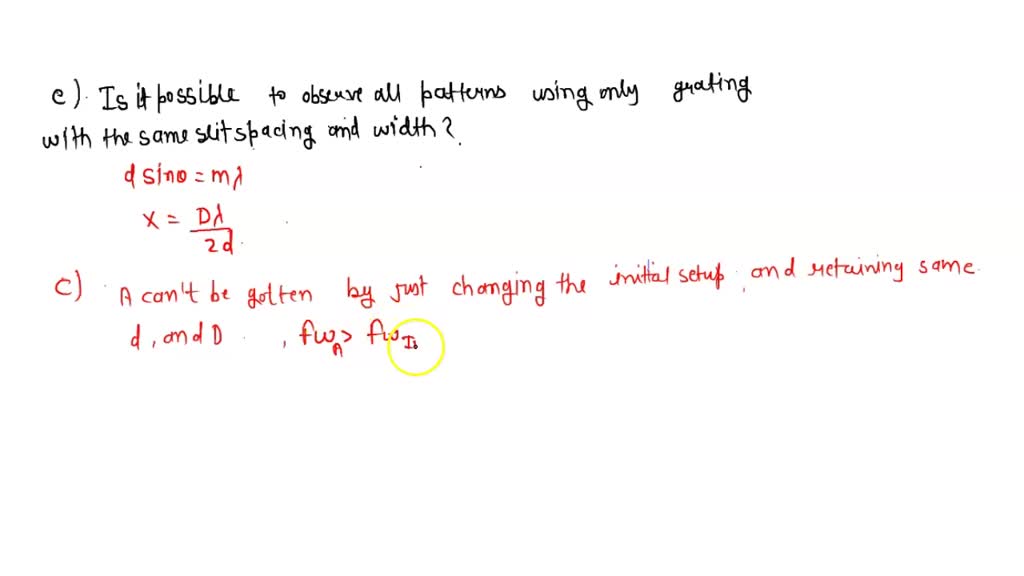 e). Is it possible to observe all patterns using only grating
with the same slit spacing and width?
d sinθ = mλ
x = Dλ
2d
c) A can't be gotten by just changing the initial setup, and retaining same
d, and D , fw_A > fw_I